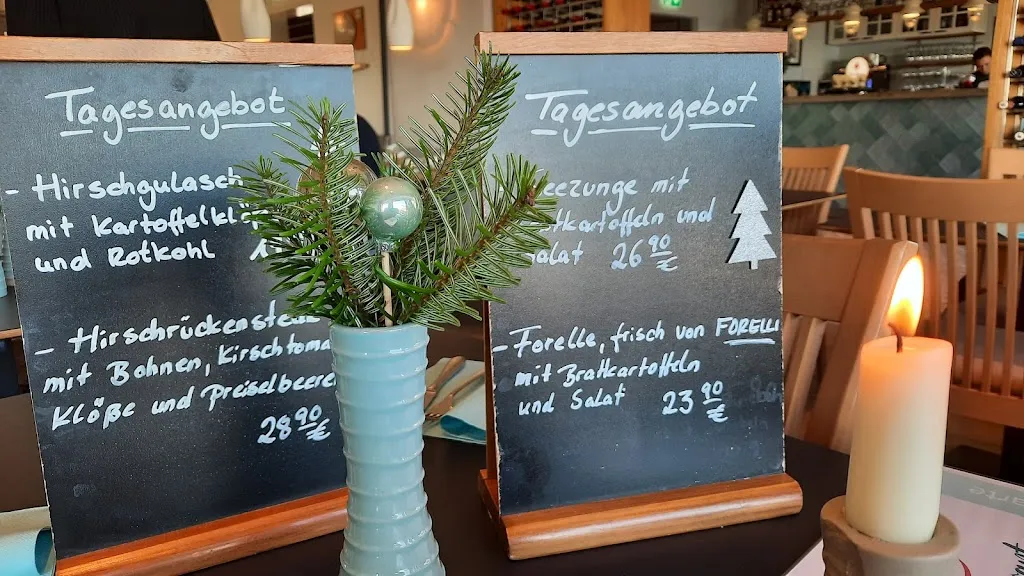 Tagesangebot
- Hirschgulasch
mit Kartoffelklö
und Rotkohl
- Hirschrückenstea
mit Bohnen, Kirschtoma
Klöße und Preiselbeere
28 90 €
Tagesangebot
eezunge mit
atkartoffeln und
alat 26 90 €
- Forelle, frisch von FORELLI
mit Bratkartoffeln
und Salat 23 90 €
arte